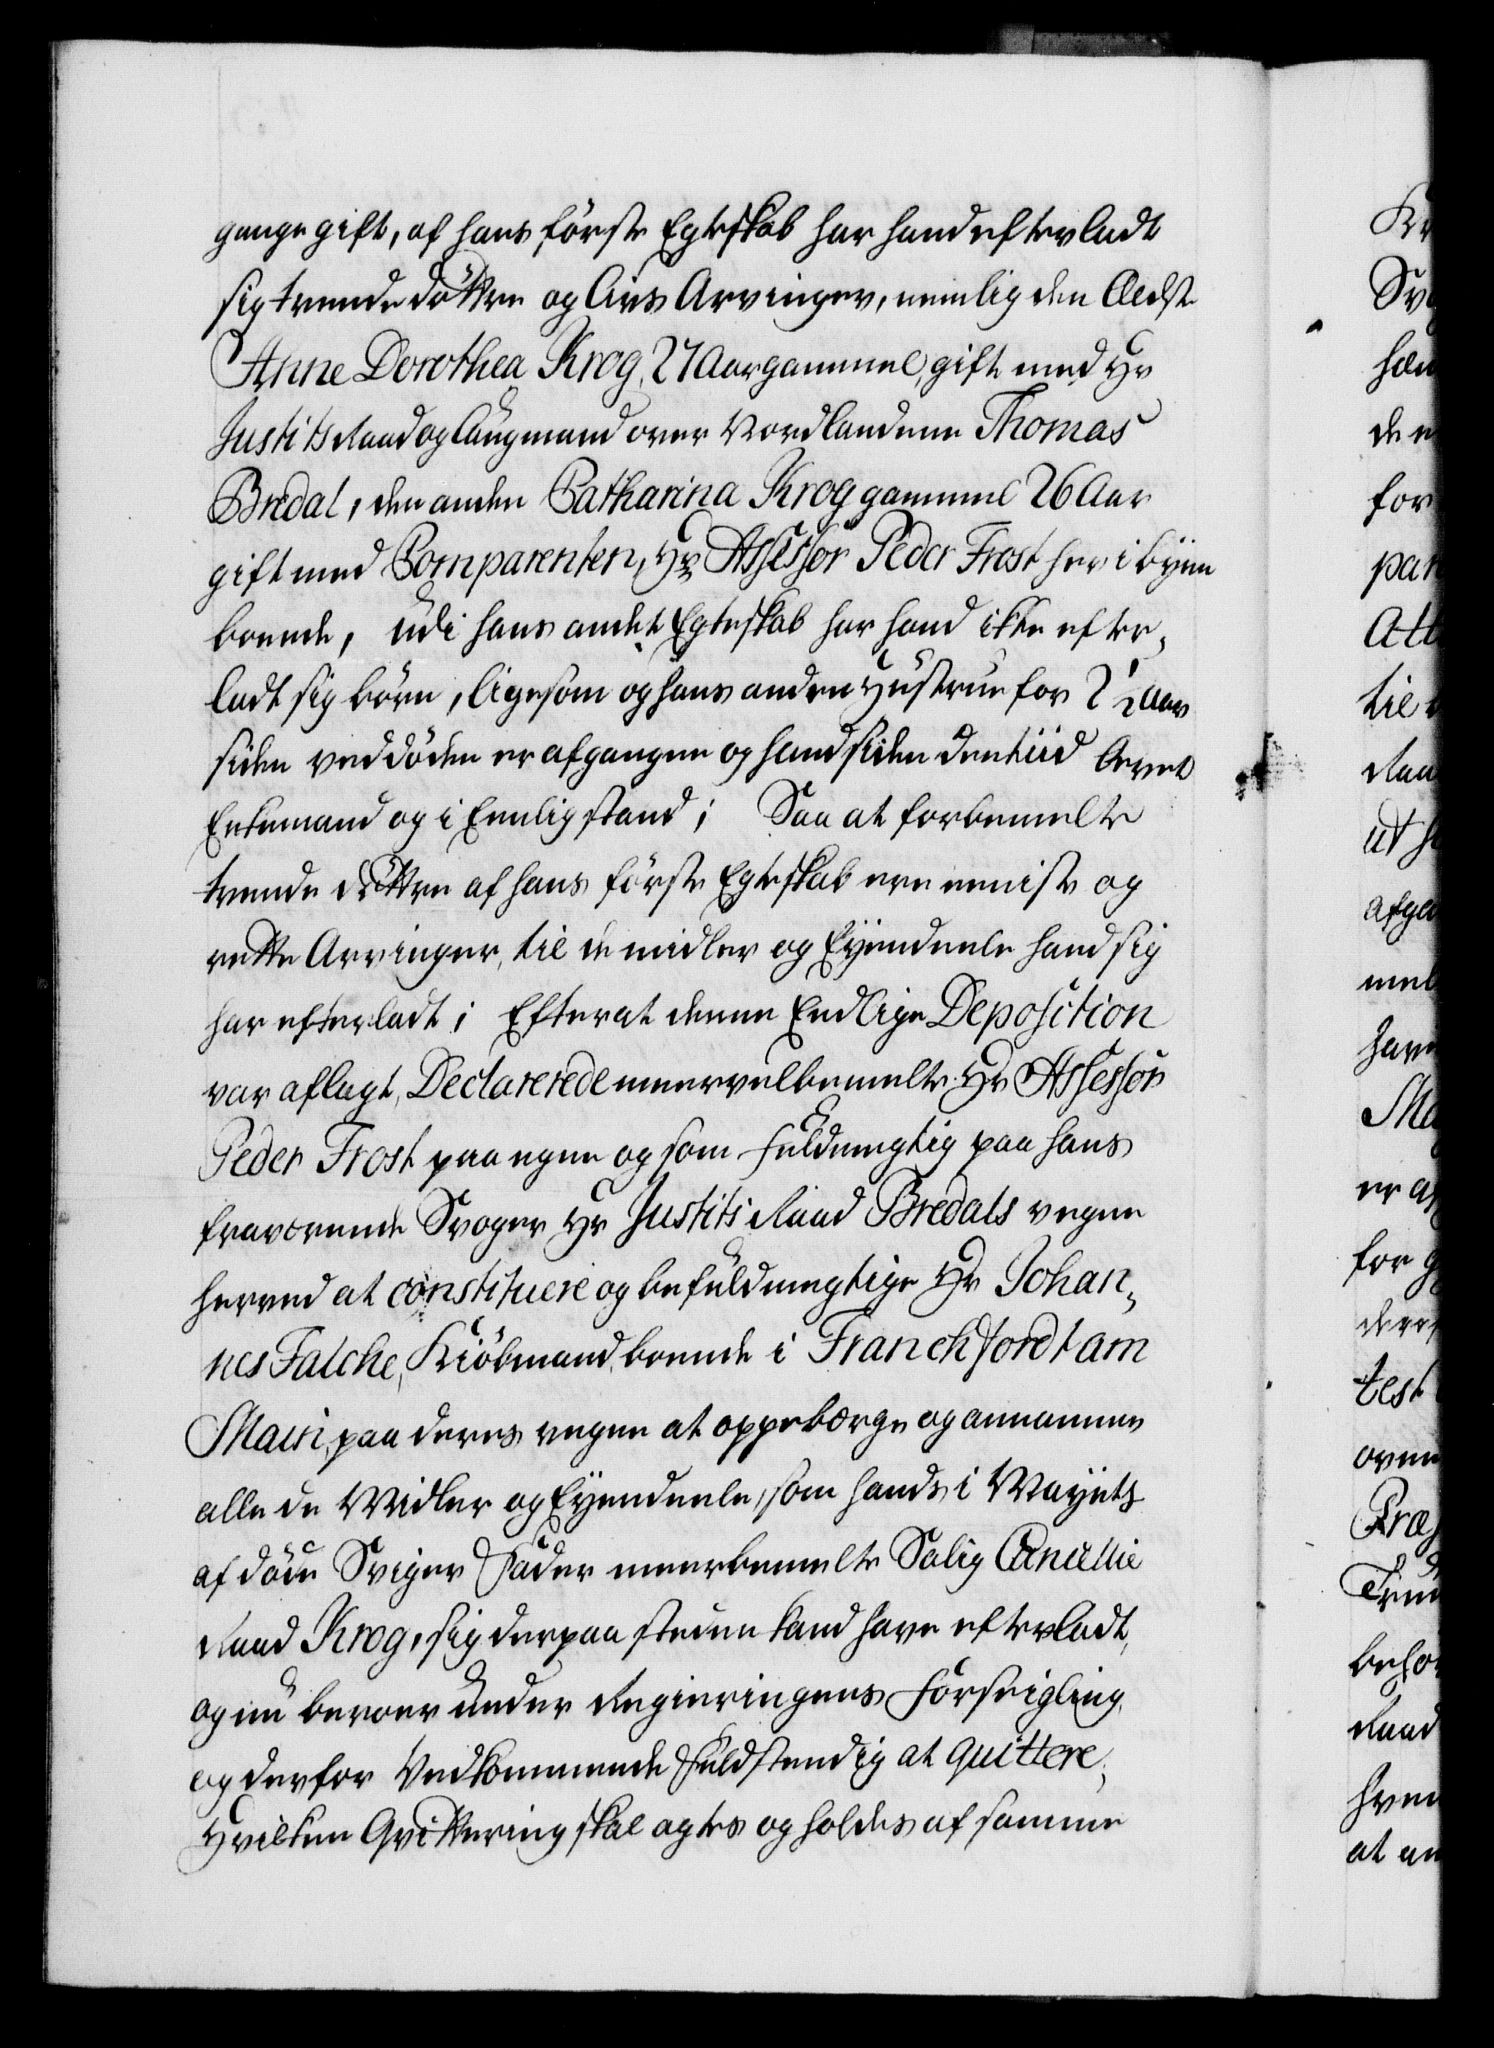 gange gift, af hans første Egteskab har hand efterladt
sig tvende døttre og Livs Arvinger, nemlig den Ældste
Anne Dorothea Krog, 27 Aar gammel, gift med Hr
Justits Raad og Laugmand over Nordlandene Thomas
Bredal, den anden Catharina Krog gammel 26 Aar
gift med Comparenten, Hr Assessor Peder Frost her i byen
boende, udi hans andet Egteskab har hand ikke efter„
ladt sig børn, ligesom og hans anden Hustrue for 2 ½ Aar
siden ved døden er afgangen og hand siden den tiid levet
Enkemand og i Eenlig stand; Saa at forbemelte
tvende døttre af hans første Egteskab ere eeniste og
rette Arvinger, til de midler og Eyendeele hand sig
har efterladt; Efter at denne Eedlige Deposition
var aflagt, Declarerede meervelbemelte Hr Assessor
Peder Frost paa egne og som fuldmegtig paa hans
fraværende Svoger Hr Justits Raad Bredals vegne
herved at constituere og befuldmegtige Hr Johan„
nes Falche, Kiøbmand, boende i Franchfordt am
Main, paa deres vegne at oppebærge og annamme
alle de Midler og Eyendeele, som hands i Mayntz
afdøde Sviger Fader meerbemelte Salig Cancellie
Raad Krog, sig der paa steden kand have efterladt,
og nu beroer under Regieringens Forseigling,
og derfor Vedkommende fuldstendig at quittere,
Hvilken Qvittering skal agtes og holdes af samme